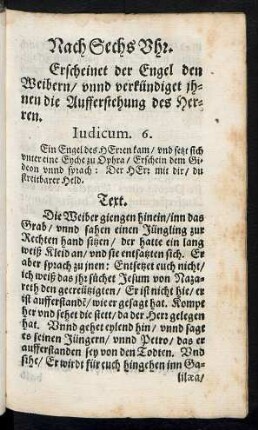 Nach Sechs Vhr.
Erscheinet der Engel den
Weibern/ vnnd verkündiget jh-
nen die Aufferstehung des Her-
ren.
Iudicum. 6.
Ein Engel des HErren kam/ vnd setzt sich
vnter eine Eyche zu Ophra/ Erschein dem Gi-
deon vnnd sprach: Der HErr mit dir/ du
streitbarer Held.
Text.
Die Weiber giengen hinein/ inn das
Grab/ vnnd sahen einen Jüngling zur
Rechten hand sitzen/ der hatte ein lang
weiß Kleid an/ vnd sie entsatzten sich. Er
aber sprach zu jnen: Entsetzet euch nicht/
ich weiß das jhr süchet Jesum von Naza-
reth den gecreützigten/ Er ist nicht hie/ er
ist aufferstandē/ wie er gesagt hat. Kompt
her vnd sehet die stett/ da der Herr gelegen
hat. Vnnd gehet eylend hin/ vnnd sagt
es seinen Jüngern/ vnnd Petro/ das er
aufferstanden sey von den Todten. Vnd
sihe/ Er wirdt für euch hingehen inn Ga-
lilæa/